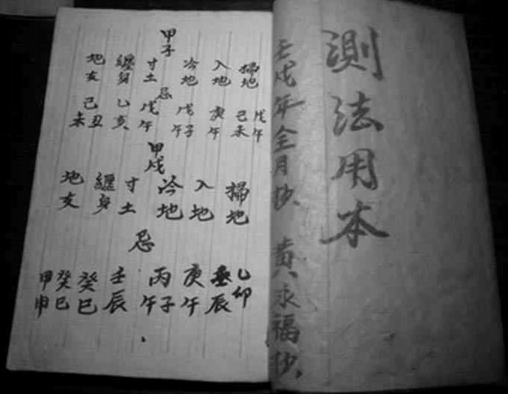 測法用本
壬戌年全月抄 黃永福抄
甲子
掃地 入地 冷地 寸土 纏身 地支
忌
戊午 己未 庚午 戊子 戊午 乙亥 己丑未
甲戌
掃地 入地 冷地 寸土 纏身 地支
忌
乙卯 辰 庚午 丙子午 壬辰 癸巳 癸巳 甲申